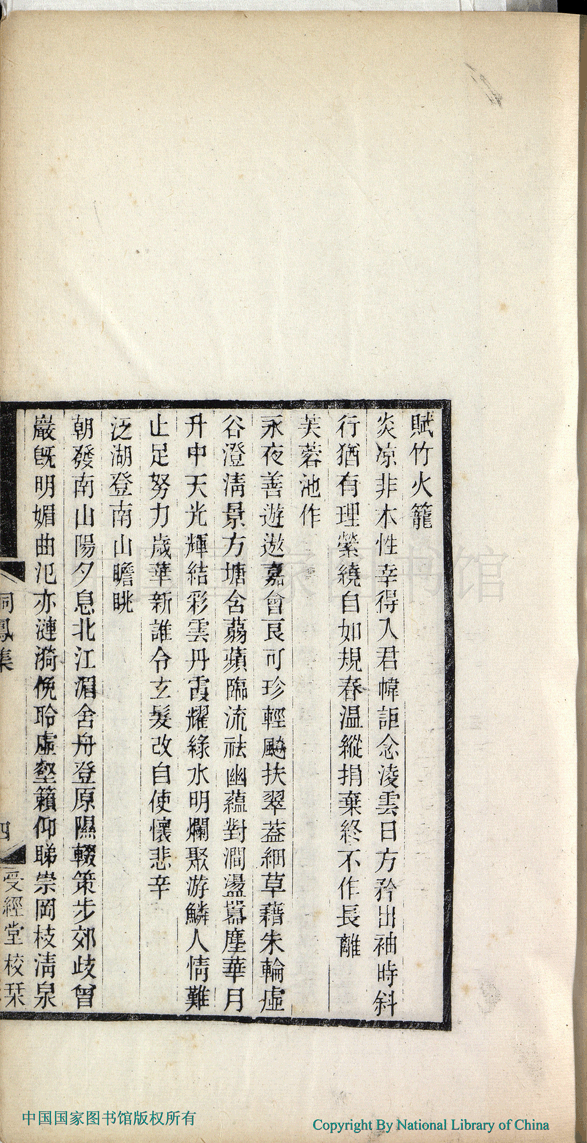 賦竹火籠
炎凉非本性幸得入君幃詎念淩雲日方矜出袖時斜
行猶有理縈繞自如規春溫縱捐棄終不作長離
芙蓉池作
永夜善遊遨嘉會良可珍輕颸扶翠葢細草藉朱輪虛
谷澄淸景方塘含蒻蘋臨流袪幽蘊對澗盪嚚塵華月
升中天光輝結彩雲丹霞耀綠水明爛聚游鱗人情難
止足努力歲華新誰令玄髮改自使懷悲辛
泛湖登南山瞻眺
朝發南山陽夕息北江湄舍舟登原隰輟策步郊歧曾
巖旣明媚曲汜亦漣漪俛聆虛壑籟仰睇崇岡枝淸泉
桐鳳集
四
受經堂校栞
中国国家图书馆
中国国家图书馆版权所有
Copyright By National Library of China